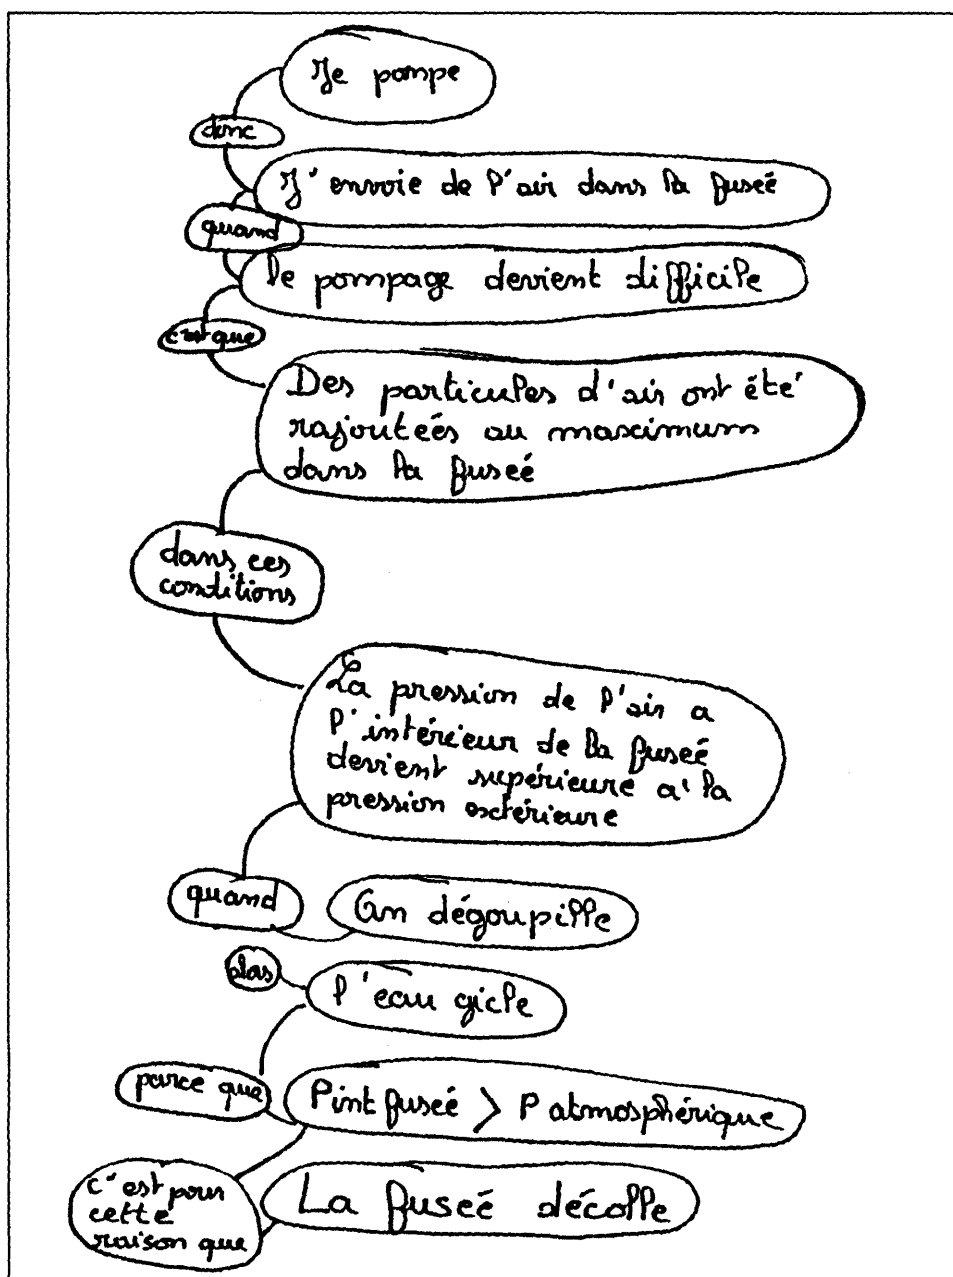 Je pompe
donc
J'envoie de l'air dans la fuseé
quand
le pompage devient difficile
c'est que
Des particules d'air ont été
rajouteés au maximum
dans la fuseé
dans ces
conditions
La pression de l'air a
l'intérieur de la fuseé
devient supérieure a' la
pression extérieure
quand
On dégoupille
alors
l'eau gicle
parce que
Pint fuseé > P atmosphérique
c'est pour
cette
raison que
La fuseé décolle